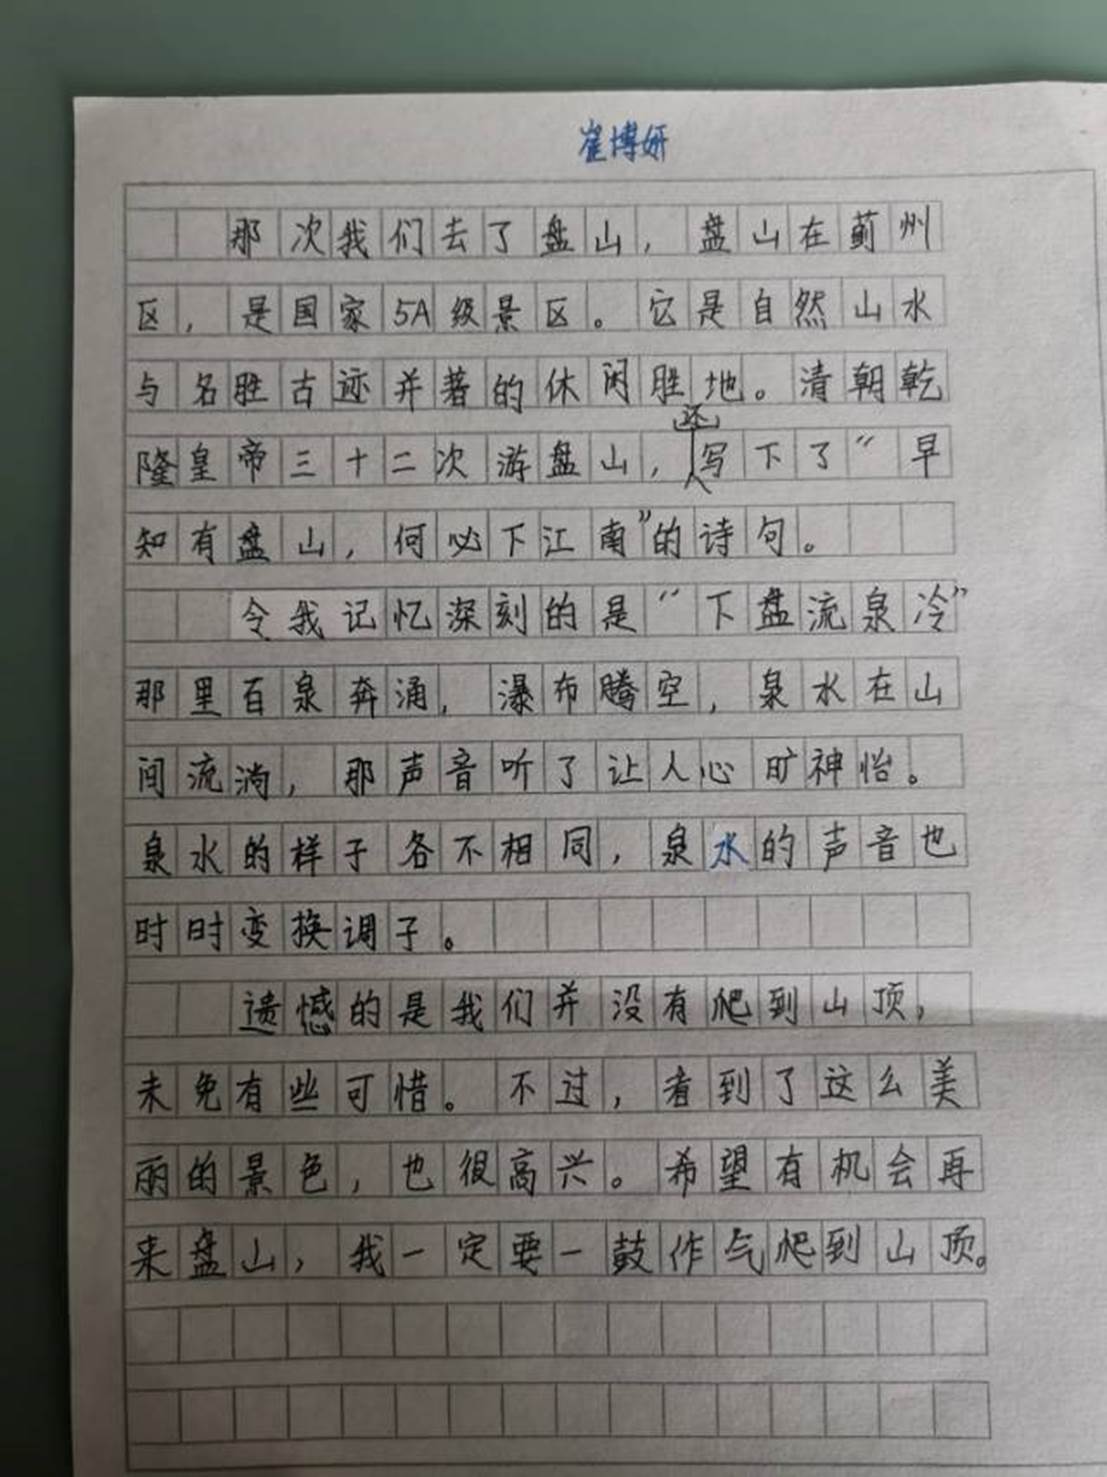 崔博妍
那次我们去了盘山，盘山在蓟州
区，是国家5A级景区。它是自然山水
与名胜古迹并著的休闲胜地。清朝乾
隆皇帝三十二次游盘山，还写下了“早
知有盘山，何必下江南”的诗句。
令我记忆深刻的是“下盘流泉冷”
那里百泉奔涌，瀑布腾空，泉水在山
间流淌，那声音听了让人心旷神怡。
泉水的样子各不相同，泉水的声音也
时时变换调子。
遗憾的是我们并没有爬到山顶，
未免有些可惜。不过，看到了这么美
丽的景色，也很高兴。希望有机会再
来盘山，我一定要一鼓作气爬到山顶。